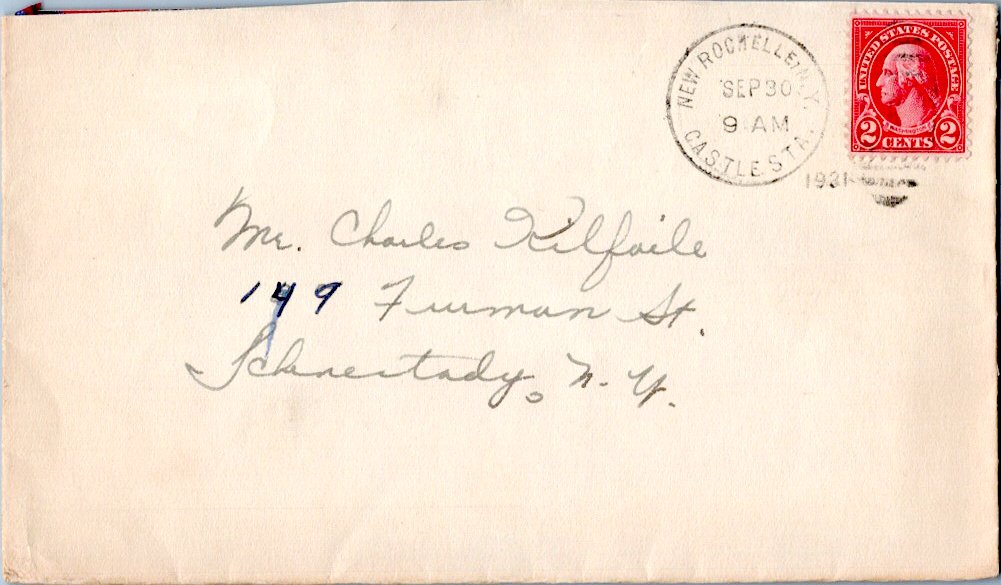 NEW ROCHELLE, N.Y.
SEP 30
9 AM
CASTLE STA.
1931
UNITED STATES POSTAGE
WASHINGTON
2 CENTS 2
Mr. Charles Kilfoile
149 Furman St.
Schnectady, N. Y.